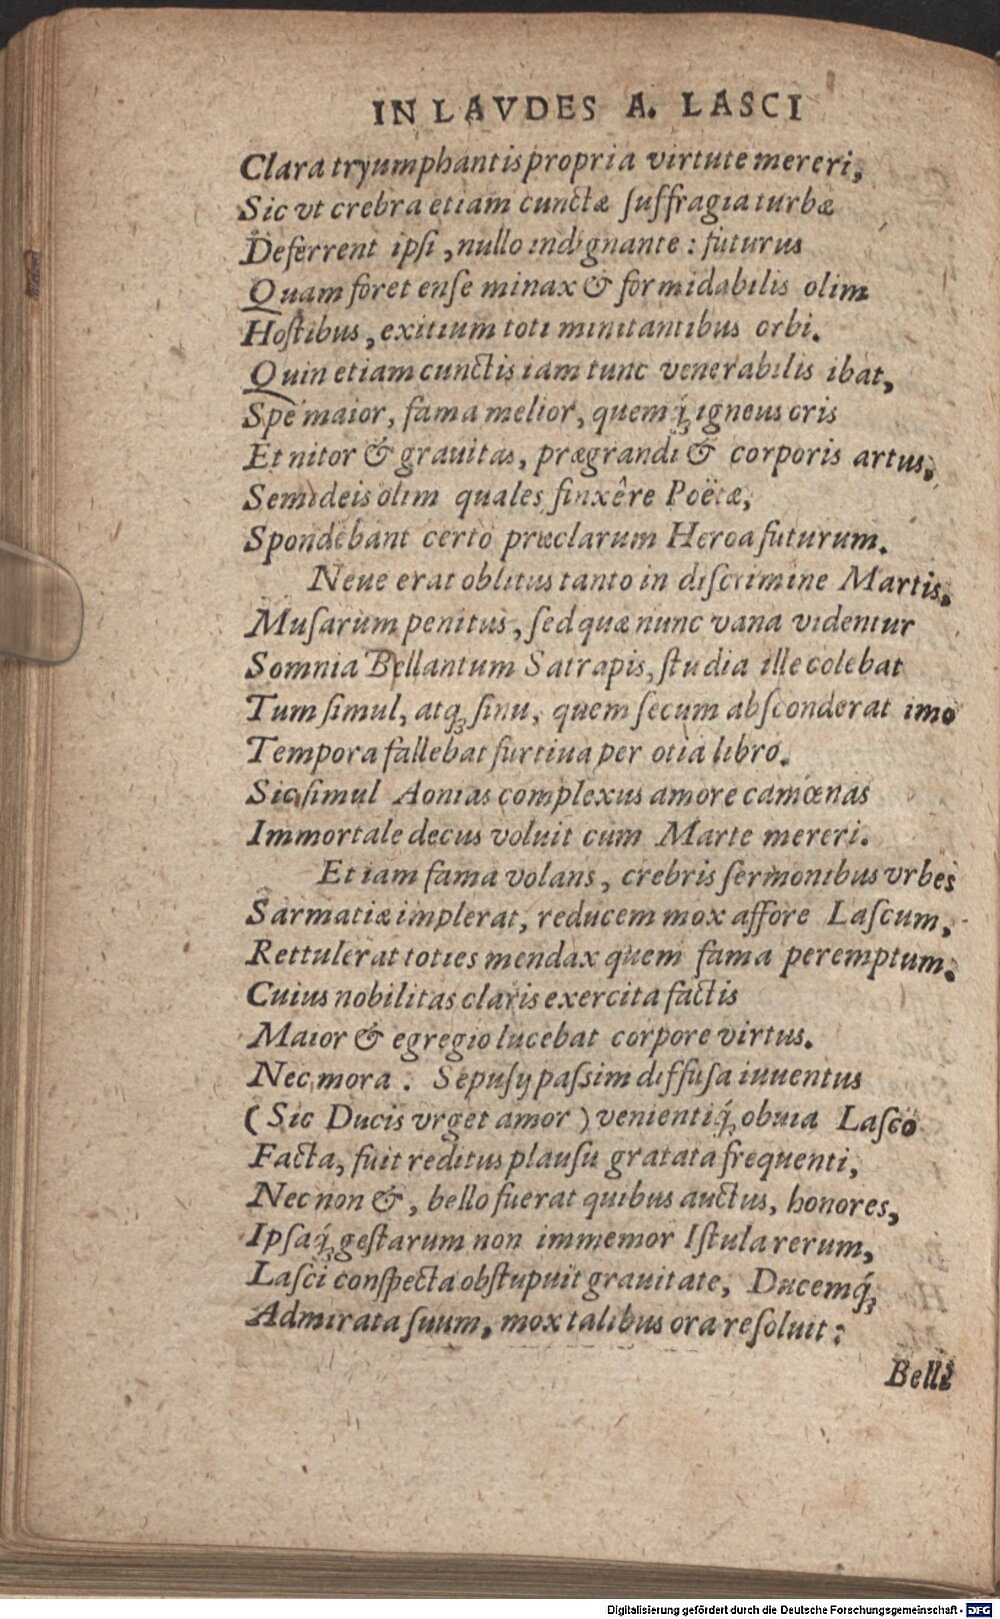 IN LAVDES A. LASCI
Clara tryumphantis propria virtute mereri,
Sic vt crebra etiam cunctæ ſuffragia turbæ
Deferrent ipſi, nullo indignante: futurus
Quam foret enſe minax & formidabilis olim
Hoſtibus, exitium toti minitantibus orbi.
Quin etiam cunctis iam tunc venerabilis ibat,
Spe maior, fama melior, quemq́; igneus oris
Et nitor & grauitas, prægrandi & corporis artus,
Semideis olim quales finxêre Poëtæ,
Spondebant certò præclarum Heroa futurum.
Neue erat oblitus tanto in diſcrimine Martis,
Muſarum penitus, ſed quæ nunc vana videntur
Somnia Bellantum Satrapis, ſtudia ille colebat
Tum ſimul, atq; ſinu, quem ſecum abſconderat imo
Tempora fallebat furtiua per otia libro.
Sic ſimul Aonias complexus amore camœnas
Immortale decus voluit cum Marte mereri.
Et iam fama volans, crebris ſermonibus vrbes
Sarmatiæ implerat, reducem mox affore Laſcum,
Rettulerat toties mendax quem fama peremptum.
Cuius nobilitas claris exercita factis
Maior & egregio lucebat corpore virtus.
Nec mora. Sepuſij paſsim diffuſa iuuentus
(Sic Ducis vrget amor) venientiq́; obuia Laſco
Facta, fuit reditus plauſu gratata frequenti,
Nec non &, bello fuerat quibus auctus, honores,
Ipſaq́; geſtarum non immemor Iſtula rerum,
Laſci conſpecta obſtupuit grauitate, Ducemq́;
Admirata ſuum, mox talibus ora reſoluit:
Belli
Digitalisierung gefördert durch die Deutsche Forschungsgemeinschaft - DFG